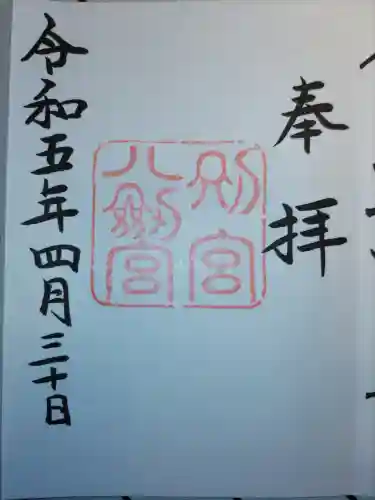 奉拝
別宮
八剱宮
令和五年四月三十日